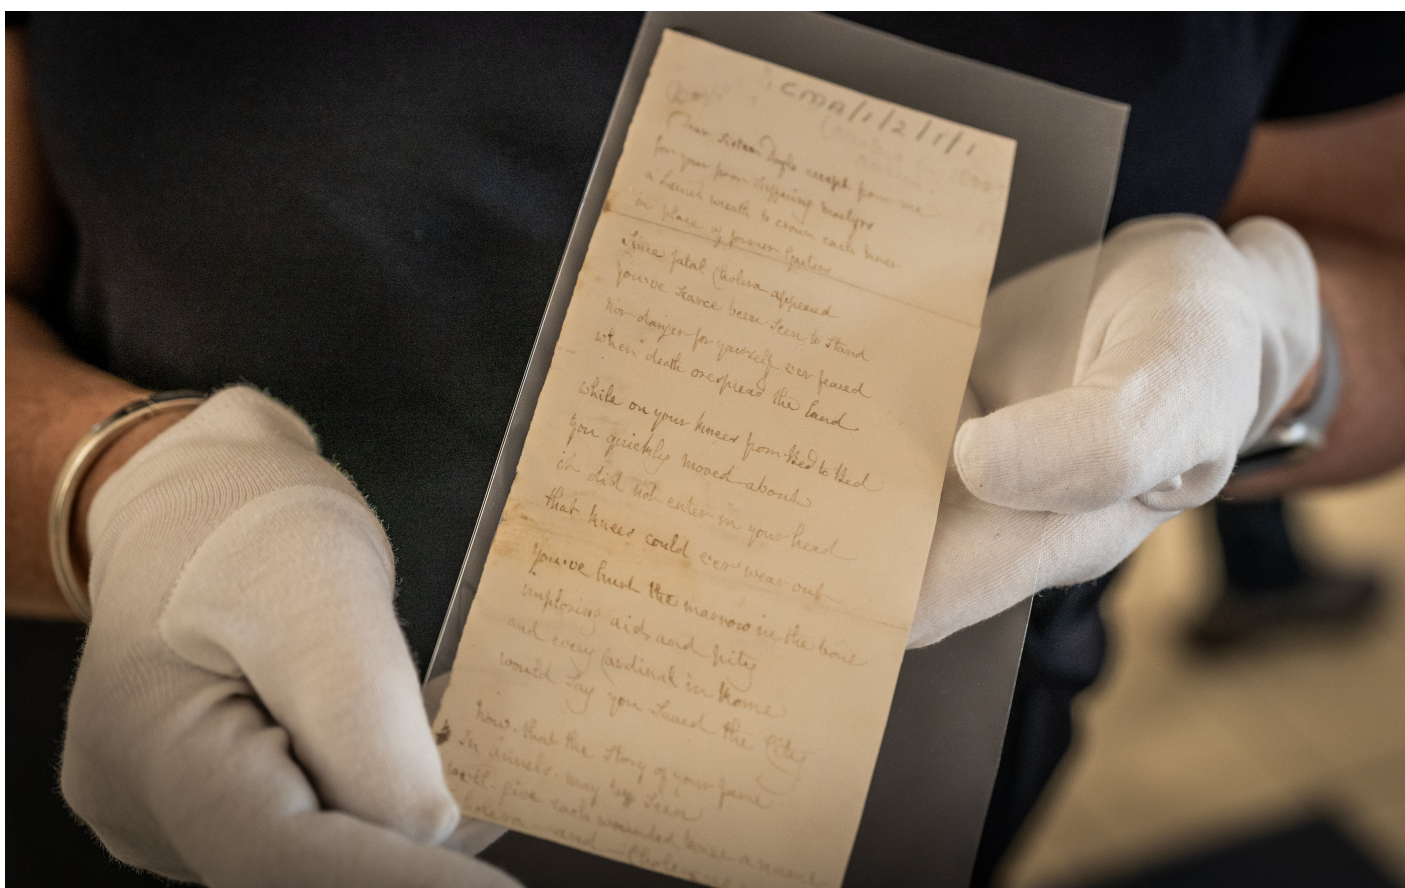 CMA/1/2/1/1
Dear Sister Doyle accept from me
for your poor suffering martyrs
a Laurel wreath to crown each knee
in place of former Garters
Since fatal Cholera appeared
you've scarce been seen to stand
nor danger for yourself e'er feared
when death o'erspread the land
while on your knees from Bed to Bed
you quickly moved about
it did not enter in your head
that knees could e'er wear out
You've hurt the marrow in the bone
imploring aid and pity
and every Cardinal in Rome
would say you saved the City
now that the story of your fame
In annals may be seen
we'll give each wounded knee a name
Cholera and